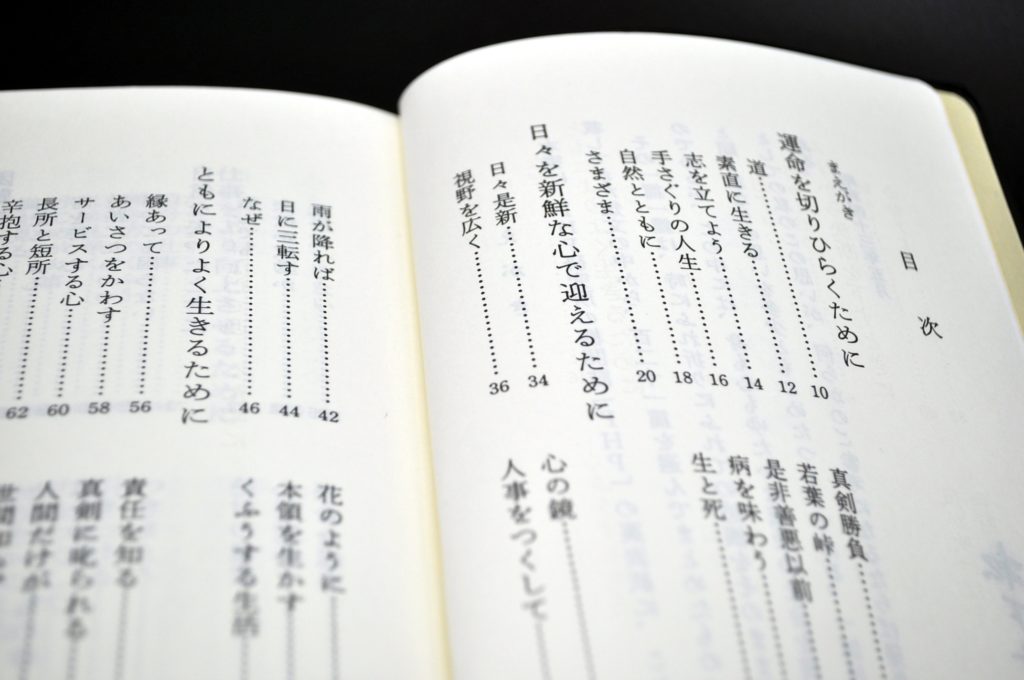 目次
まえがき
運命を切りひらくために
道……10
素直に生きる……12
志を立てよう……14
手さぐりの人生……16
自然とともに……18
さまざま……20
真剣勝負……
若葉の峠……
是非善悪以前……
病を味わう……
生と死……
日々を新鮮な心で迎えるために
日々是新……34
視野を広く……36
心の鏡……
人事をつくして……
雨が降れば……42
日に三転す……44
なぜ……46
花のように……
本領を生かす……
くふうする生活……
ともによりよく生きるために
縁あって……56
あいさつをかわす……58
サービスする心……60
長所と短所……62
辛抱する心
責任を知る……
真剣に叱られる……
人間だけが……